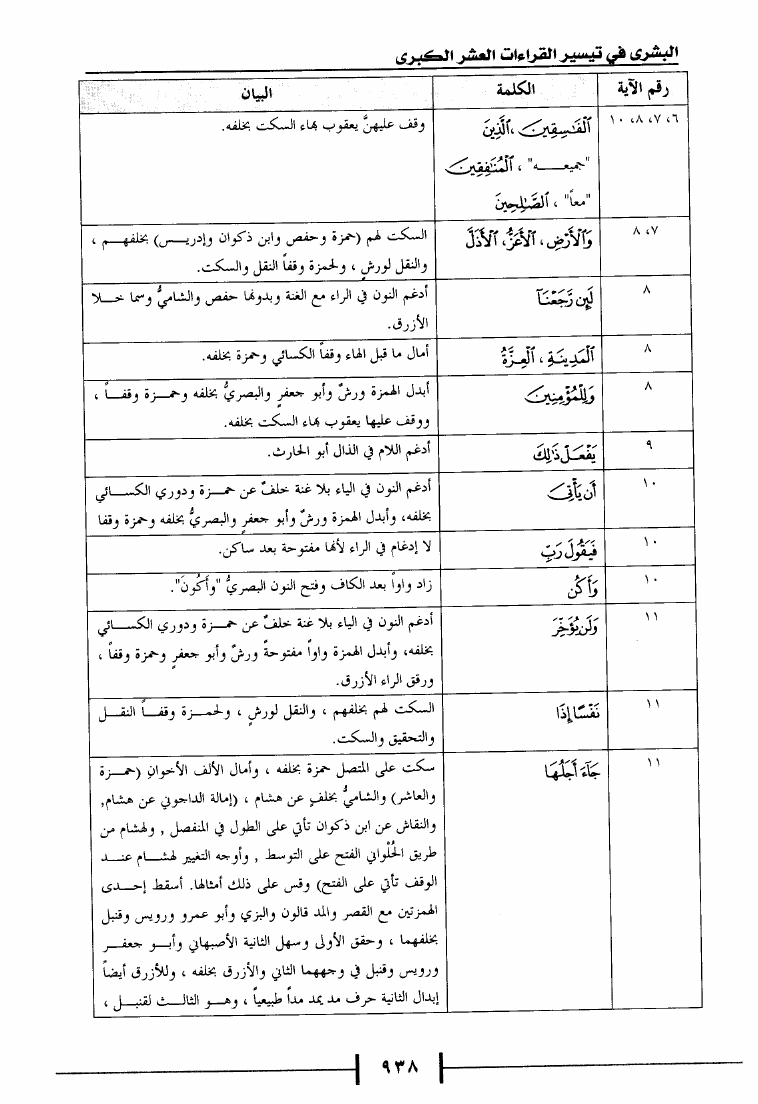 البشرى في تيسير القراءات العشر الكبرى
رقم الآية الكلمة البيان
٦، ٧، ٨، ١٠ ٱلْفَٰسِقِينَ ،ٱلَّذِينَ وقف عليهنَّ يعقوب بهاء السكت بخلفه.
"جميعـــه" ، ٱلْمُنَٰفِقِينَ
"معاً" ، ٱلصَّٰلِحِينَ
٧، ٨ وَٱلْأَرْضِ، ٱلْأَعَزُّ، ٱلْأَذَلَّ السكت لهم (حمزة وحفص وابن ذكوان وإدريــس) بخلفهــم ،
والنقل لورشٍ ، ولحمزة وقفاً النقل والسكت.
٨ لَئِن رَّجَعْنَآ أدغم النون في الراء مع الغنة وبدونها حفص والشاميُّ وسما خــلا
الأزرق.
٨ ٱلْمَدِينَةِ ، ٱلْعِزَّةُ أمال ما قبل الهاء وقفاً الكسائي وحمزة بخلفه.
٨ وَلِلْمُؤْمِنِينَ أبدل الهمزة ورشٌ وأبو جعفرٍ والبصريُّ بخلفه وحمــزة وقفــاً ،
ووقف عليها يعقوب بهاء السكت بخلفه.
٩ يَفْعَلْ ذَٰلِكَ أدغم اللام في الذال أبو الحارث.
١٠ أَن يَأْتِىَ أدغم النون في الياء بلا غنة خلفٌ عن حمــزة ودوري الكســائي
بخلفه، وأبدل الهمزة ورشٌ وأبو جعفرٍ والبصريُّ بخلفه وحمزة وقفا
١٠ فَيَقُولَ رَبِّ لا إدغام في الراء لأنها مفتوحة بعد ساكن.
١٠ وَأَكُن زاد واواً بعد الكاف وفتح النون البصريُّ "وأَكُونَ".
١١ وَلَن يُؤَخِّرَ أدغم النون في الياء بلا غنة خلفٌ عن حمــزة ودوري الكســائي
بخلفه، وأبدل الهمزة واواً مفتوحةً ورشٌ وأبو جعفرٍ وحمزة وقفاً ،
ورقق الراء الأزرق.
١١ نَفْسًا إِذَا السكت لهم بخلفهم ، والنقل لورشٍ ، ولحمــزة وقفــاً النقــل
والتحقيق والسكت.
١١ جَآءَ أَجَلُهَا سكت على المتصل حمزة بخلفه ، وأمال الألف الأخوانِ (حمــزة
والعاشر) والشاميُّ بخلفٍ عن هشام ، (إمالة الداجوني عن هشام,
والنقاش عن ابن ذكوان تأتي على الطول في المنفصل , ولهشام من
طريق الحُلْواني الفتح على التوسط , وأوجه التغيير لهشــام عنــد
الوقف تأتي على الفتح) وقس على ذلك أمثالها. أسقط إحــدى
الهمزتين مع القصر والمد قالون والبزي وأبو عمرو ورويس وقنبل
بخلفهما ، وحقق الأولى وسهل الثانية الأصبهاني وأبــو جعفــر
ورويس وقنبل في وجههما الثاني والأزرق بخلفه ، وللأزرق أيضاً
إبدال الثانية حرف مد يمد مداً طبيعياً ، وهــو الثالــث لقنبــل ،
٩٣٨